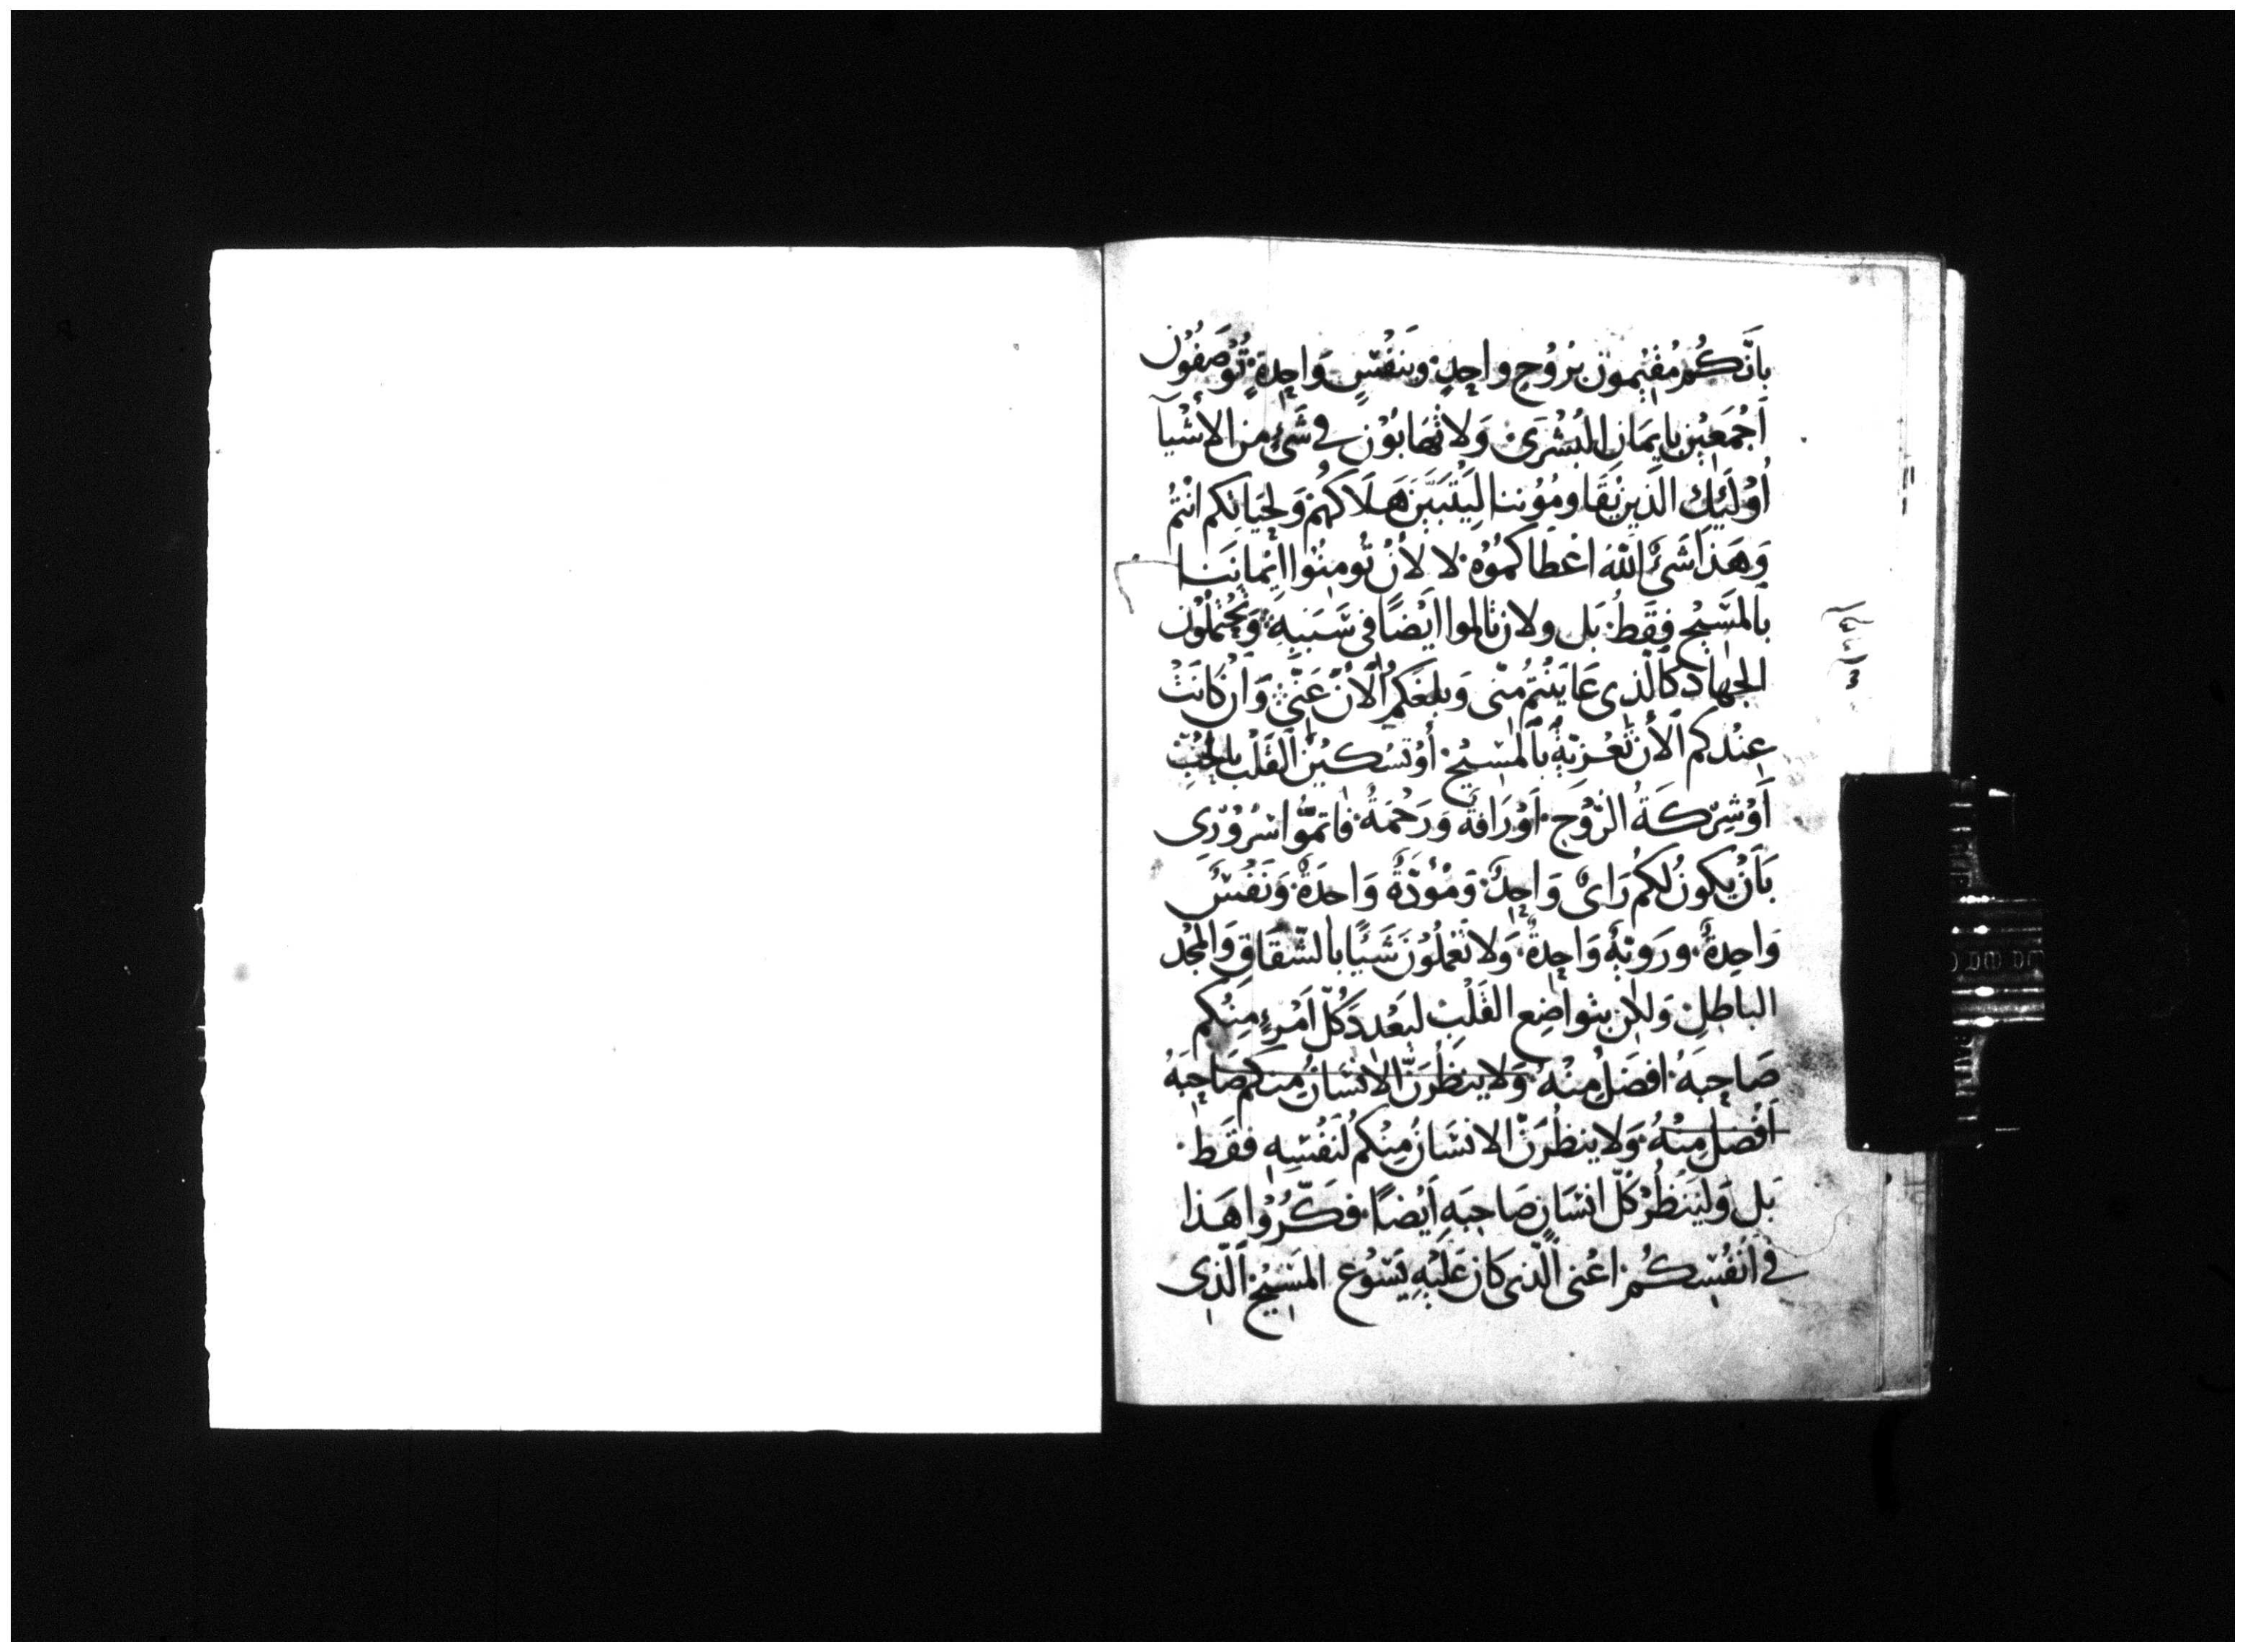 بانَّكُم مُقيْمون بُروُحٍ واحِدٍ. وبنفْسٍ وَاحِدةٍ. تُوْصَفُوْن
اَجْمَعيْن بايمَان البُشْرَى. وَلا تهَابُوْن في شَئٍ من الأشْيَآ
اُوْلَئِك الَذين يُقَاومُوُننا لِيَتَبَيَّن هَلَاكهُمْ وَلحَيَاتِكم انتُمْ
وَهَذا شَئٌ اللَّه اعْطَاكمُوُه. لا لأنْ تُومنُوا ايْماننَا
بالمسَيْح فقَطْ. بَل ولان تالموا ايَضًا في سَبَبِهِ. وَتحْتملُوْن
الجهَادَ كالَّذى عَاينْتمْ منّى وَبلغَكمُ الأنَ عَنَّى. وَانْ كانَتْ
عِنْدكم الأن تَعْزيَةٌ بالمْسَيْح. أوْ تسْكيْن القَلْب بالحُبِّ
أَوْ شِرْكَةُ الرّوُح. اَوْ رَافَةٌ وَرَحْمَةٌ. فاتمّوُا سُرُوْرِي
بَاَنْ يكونُ لكمُ رَاىٌ وَاحِدٌ. وَمُوَدّةٌ وَاحدَةٌ. وَنَفْسٌ
وَاحِدةٌ. ورَويّةٌ وَاحِدةٌ. وَلا تَعْملُوْنَ شَيئًا بالشّقَاق وَالمجْد
الباطلِ. وَلكن بتواضِع القَلْبِ ليَعْدد كُلّ اَمْرءٍ مِنْكم
صَاحِبَهُ. افضَل مِنْهُ. وَلا ينظُرَنَّ الانسَانُ منِكم صَاحِبَهُ
اَفْضل مِنْهُ. وَلا ينظُرَنَّ الانسَانُ مِنْكمُ لنَفْسِهِ فقَط.
بَل وَلْيَنْظُرْ كُلّ انسَانٍ صَاحِبَهِ اَيْضاً. فكّرُوْا هَذا
في اَنْفُسِكُمْ. اعْنى الَّذى كان عَلَيْهِ يَسْوُع المسَيْح الَّذِى